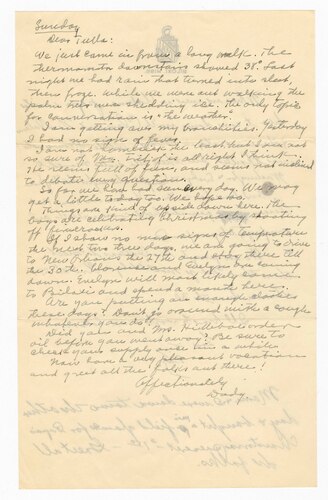 Sunday
Dear Tulla:
We just came in from a long walk. The
thermometer downstairs showed 38°. Last
night we had rain that turned into sleet,
then froze. While we were out walking the
palm trees was shedding ice. The only topic
for conversation is the weather.
I am getting over my bronchitis. Yesterday
I had no sign of fever.
I am not homesick the least but I am not
so sure of Mrs.
is all right I think.
She seems full of fun and seems not inclined
to debate every question.
So far we have had sun every day. We may
get a little today too. We hope so.
Things are kind of inside down here. The
boys are celebrating Christmas by shooting
off firecrackers.
If I show no new signs of temperature
the next two three days, we are going to drive
to New Orleans the 27th and stay there till
the 30th. Clarence and Evelyn are coming
down. Evelyn will most likely come
to Biloxi and spend a month here.
Are you putting on enough clothes
these days? Don't go around with a cough
whatever you do.
Did you and Mrs. order
oil before you went away? Be sure to
check your supply once in a while.
Now have a very pleasant vacation
and greet all the folks out there!
Affectionately
Dady.